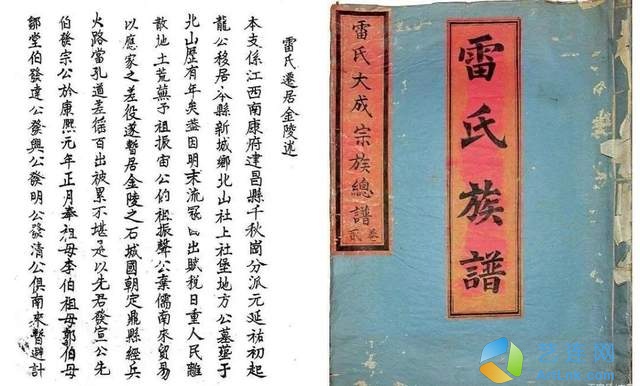 雷氏遷居金陵述
本支係江西南康府建昌縣千秋崗分派元延祐初起
龍公移居本縣新城鄉北山社上社堡地方公墓塟于
北山歷有年矣葢因明末流寇四出賦税日重人民離
散地土荒蕪予祖振宙公約祖振聲公棄儒南來貿易
以應家之差役遂暫居金陵之石城國朝定鼎縣經兵
火路當孔道差徭百出被累不堪是以先君發宣公先
伯發宗公於康熙元年正月奉祖母李伯祖母郭伯母
鄒堂伯發達公發興公發明公發清公俱南來暫避計
雷氏族譜
雷氏大成宗族總譜
卷貳